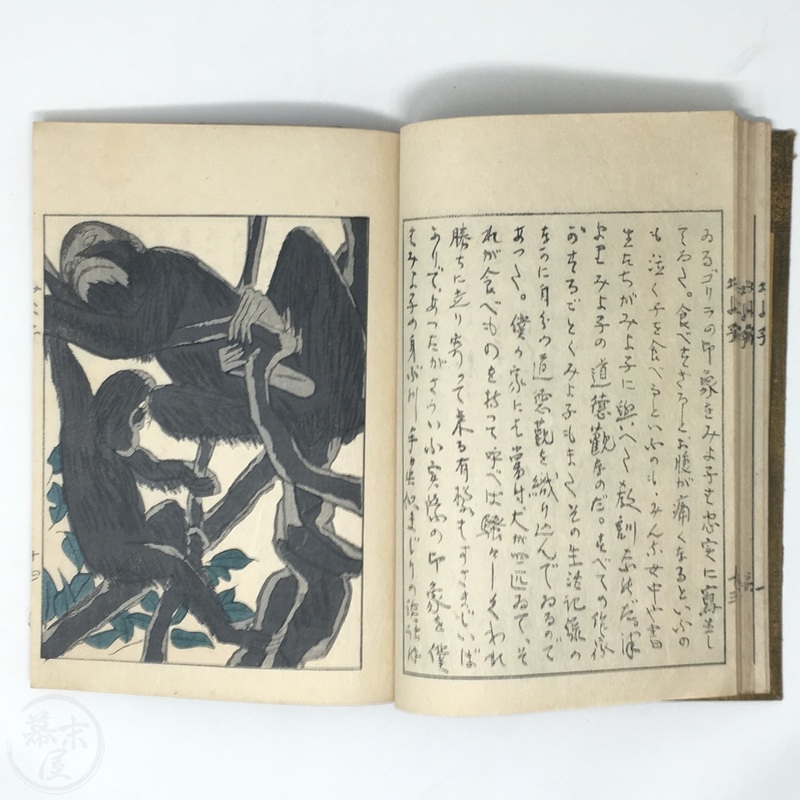 ゐるゴリラの印象をみよ子は忠実に寫生し
てゐた。食べすぎるとお腹が痛くなるといふの
も泣く子を食べるといふのも、みんな女中や書
生たちがみよ子に與へた教訓なのだ。
みよ子の道德觀なのだ。すべての作家
がするごとくみよ子もまたその生活記錄の
なかに自分の道德觀を織り込んでゐるので
あつた。僕の家には常時犬が四匹ゐて、そ
れが食べものを持つて呼べば騷々しくわれ
勝ちに走り寄つて來る有樣もすさまじいば
かりで、あつたがさういふ実際の印象を僕
はみよ子の身ぶり手
みよ子
十三
十四
幕末屋